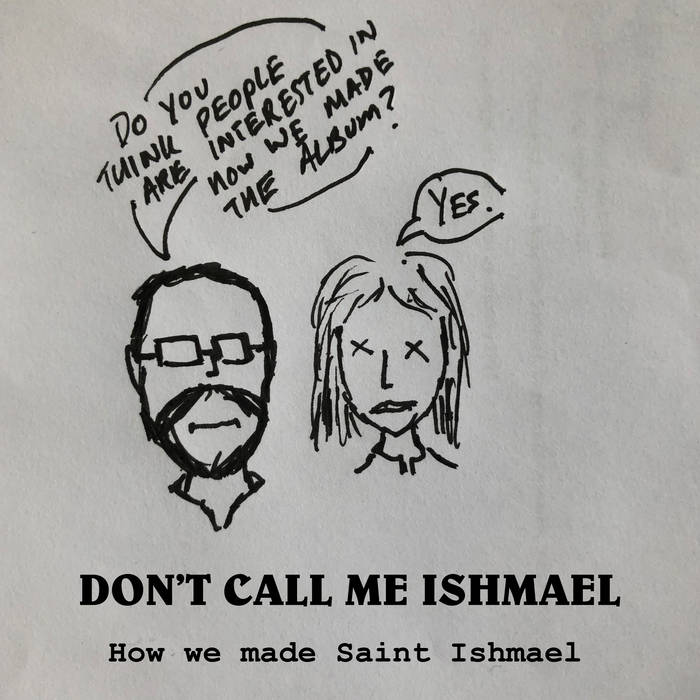 DO YOU
THINK PEOPLE
ARE INTERESTED IN
HOW WE MADE
THE ALBUM?
YES.
DON'T CALL ME ISHMAEL
How we made Saint Ishmael